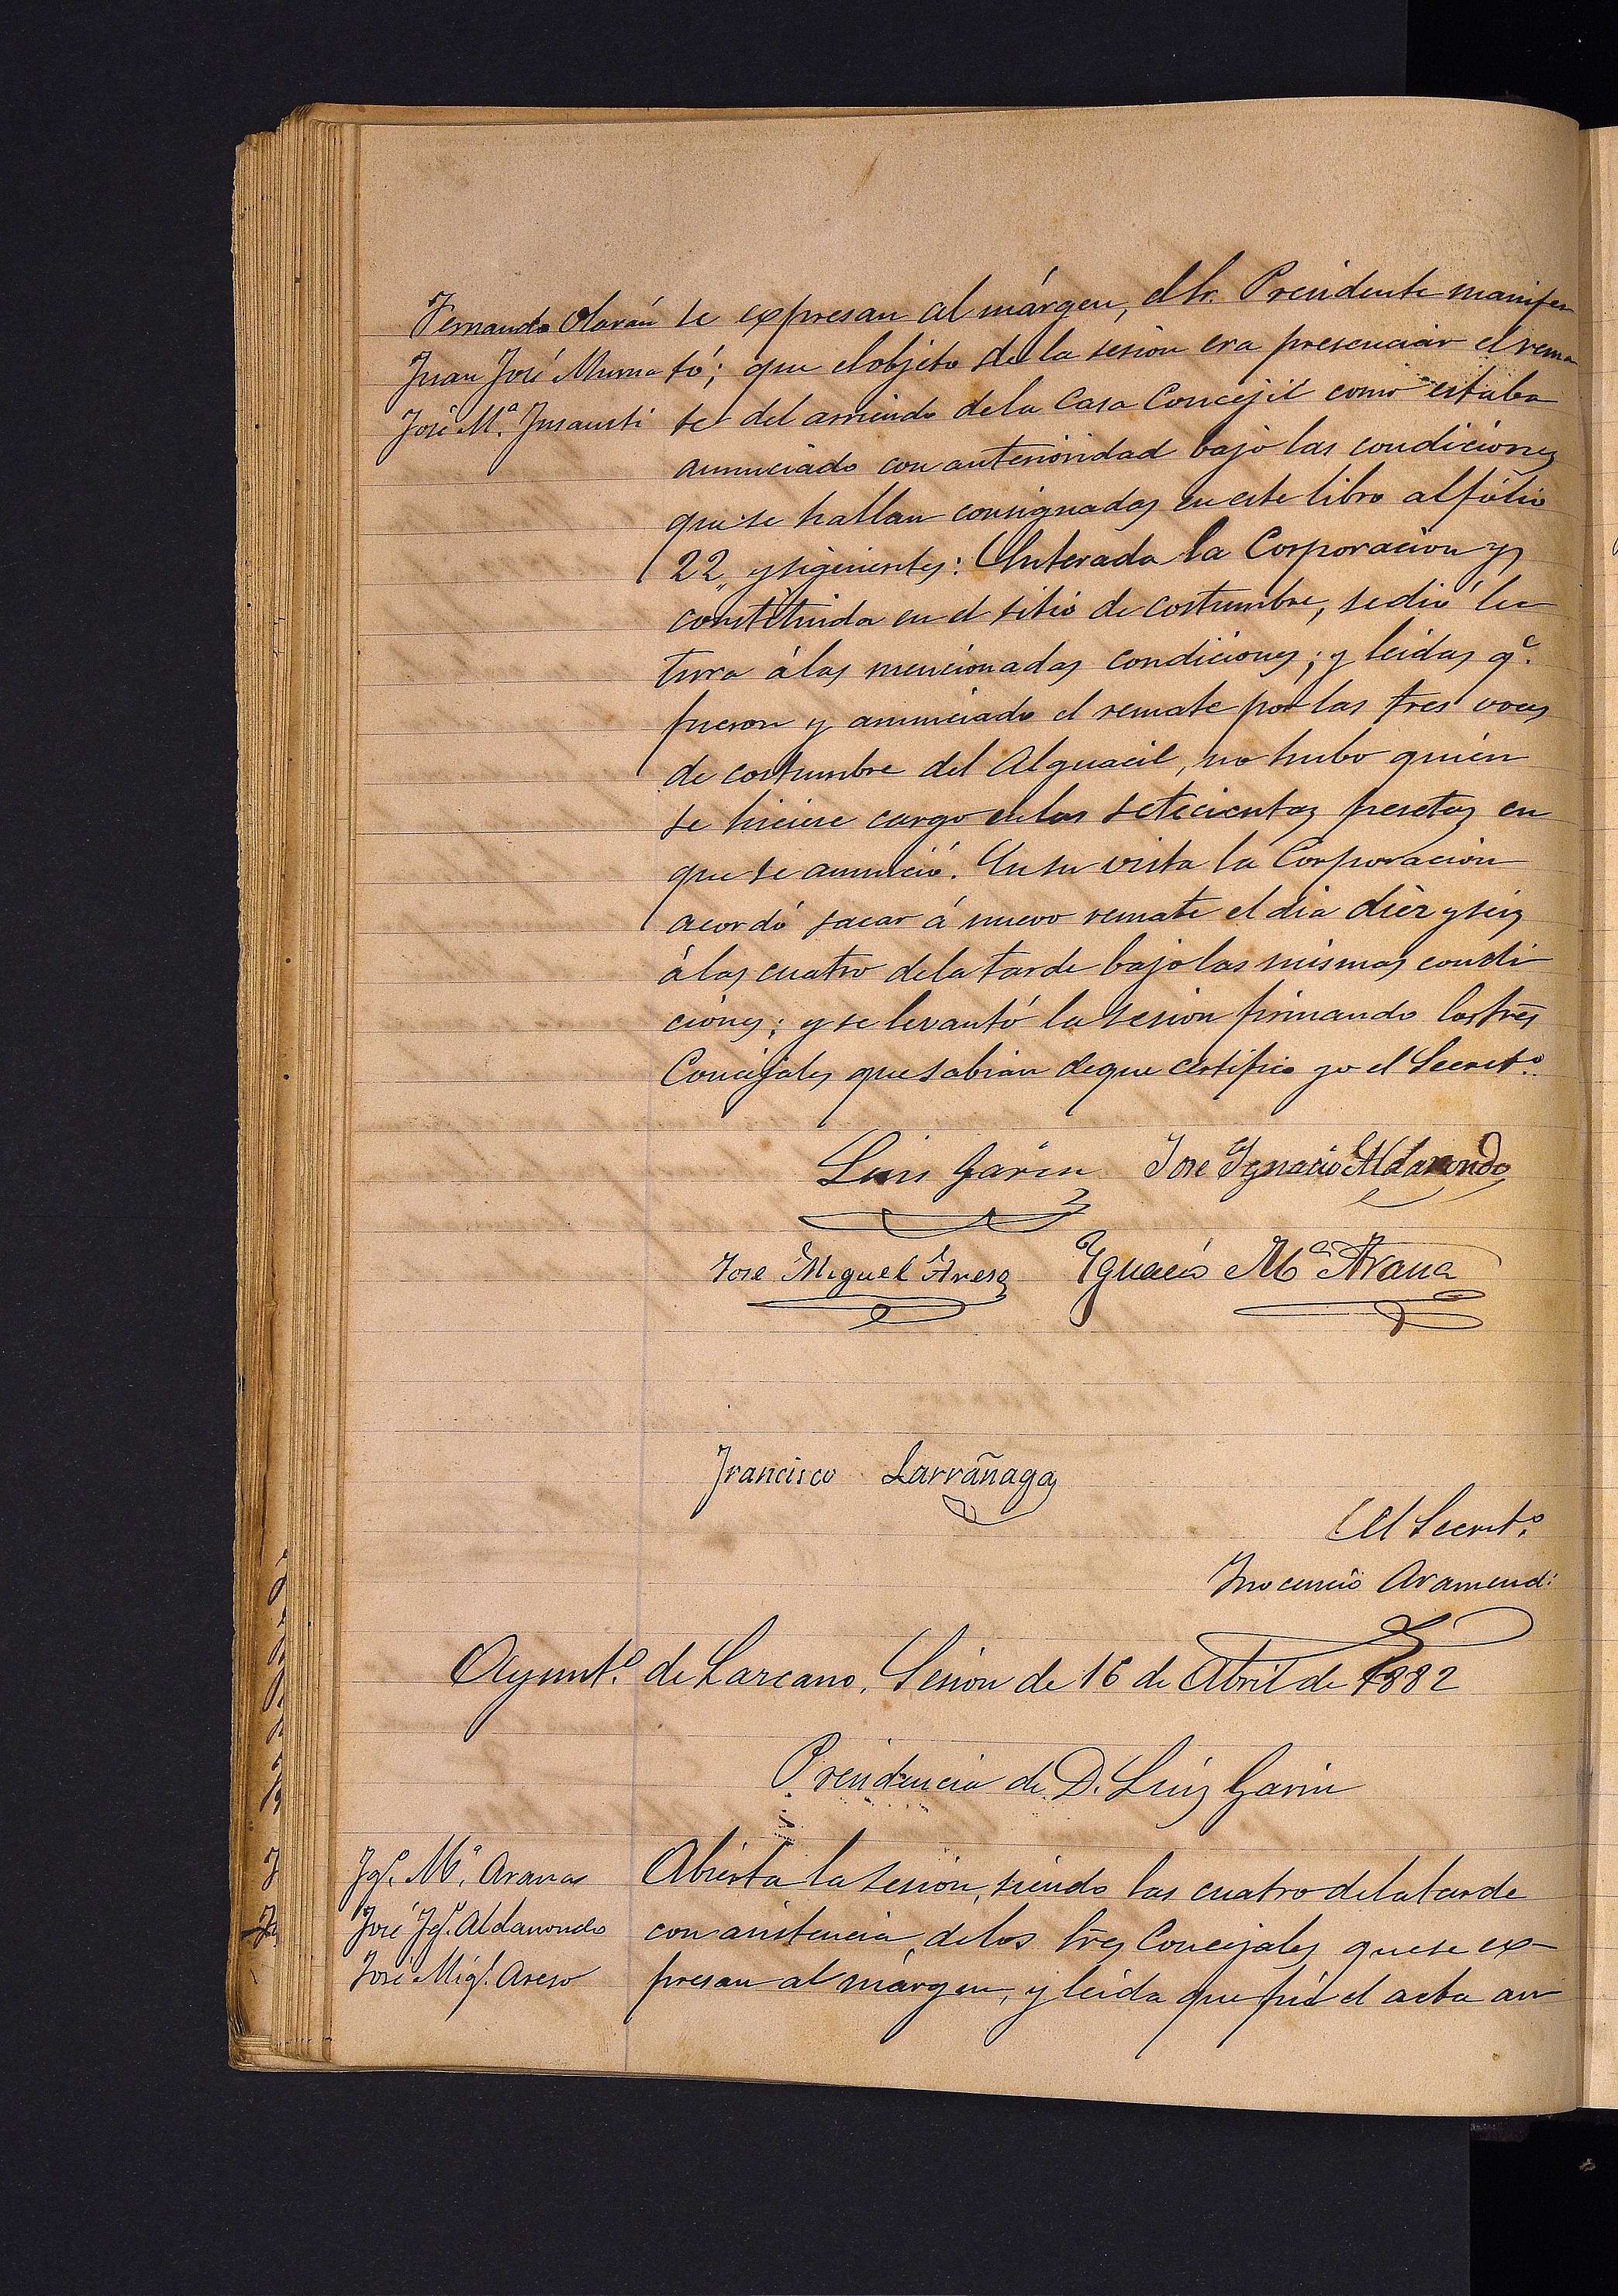 Fernando Olarán se expresan al márgen, el Sr. Presidente manifes
Juan José Murua tó; que el objeto de la sesion era presenciar el rema
José M.ª Insausti te del arriendo de la Casa Concejil como estaba
anunciado con anterioridad bajo las condiciones
que se hallan consignadas en este libro al fólio
22,, y sigientes: Enterada la Corporacion y
constituida en el sitio de costumbre, se dió lec
tura á las mencionadas condiciones; y leidas q.e
fueron y anunciado el remate por las tres voces
de costumbre del Alguacil, no hubo quién
se hiciere cargo en las setecientas pesetas en
que se anunció. En su vista la Corporacion
acordó sacar á nuevo remate el dia diéz y seis
á las cuatro de la tarde bajo las mismas condi
ciones; y se levantó la sesion firmando los Sres
Concejales que sabian de que certifico yo el Secret.º
Luis Garin José Ygnacio Aldanondo
José Miguel Areso Ygnacio M.ª Arana
Francisco Larrañaga
El Secret.º
Inocencio Aramendi
Ayunt.º de Lazcano. Sesion de 16 de Abril de 1882
Presidencia de D. Luis Garin
Ig.º M.ª Arana Abierta la sesion, siendo las cuatro de la tarde
José Ig.º Aldanondo con asistencia de los Sres Concejales que se ex-
José Mig.l Areso presan al márgen, y leida que fué el acta an